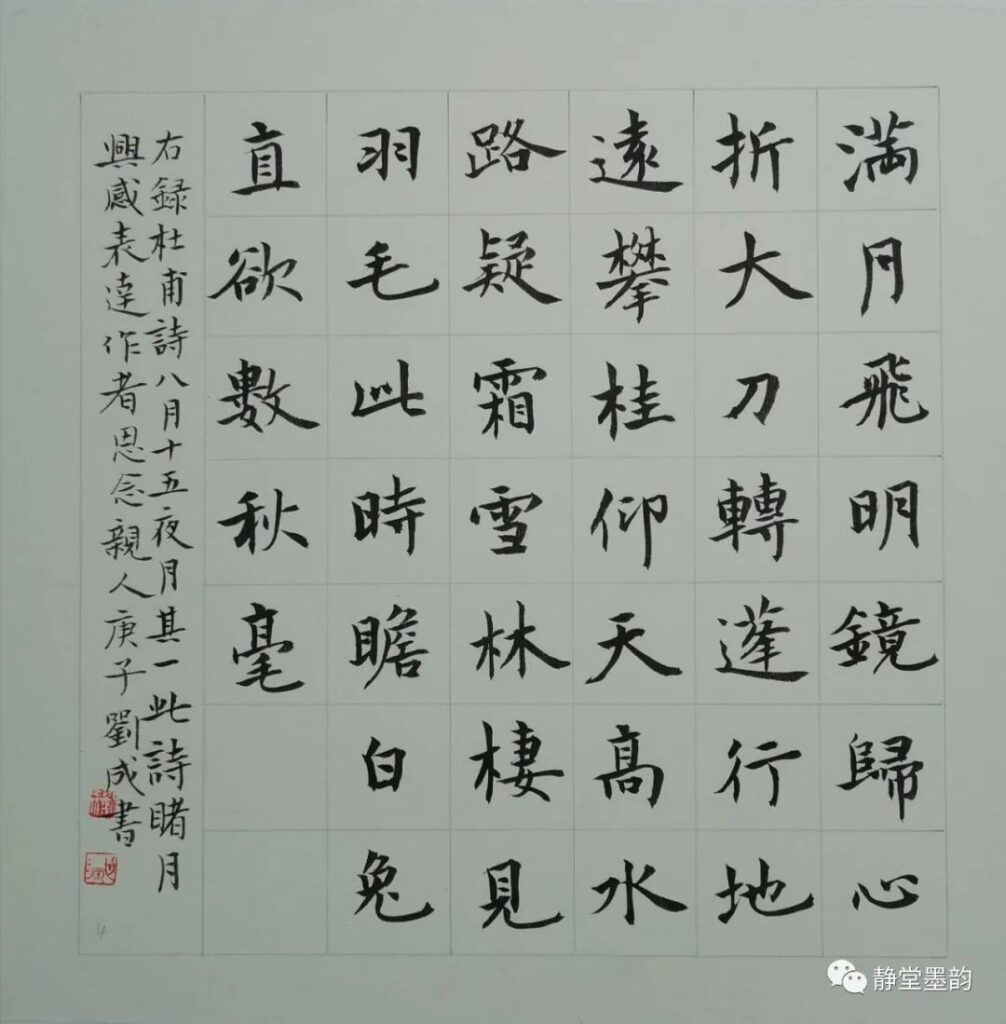 满月飛明鏡歸心
折大刀轉蓬行地
遠攀桂仰天高水
路疑霜雪林棲見
羽毛此時瞻白兔
直欲數秋毫
右録杜甫詩八月十五夜月其一此詩睹月
興感表達作者思念親人庚子劉成書
4
静堂墨韵